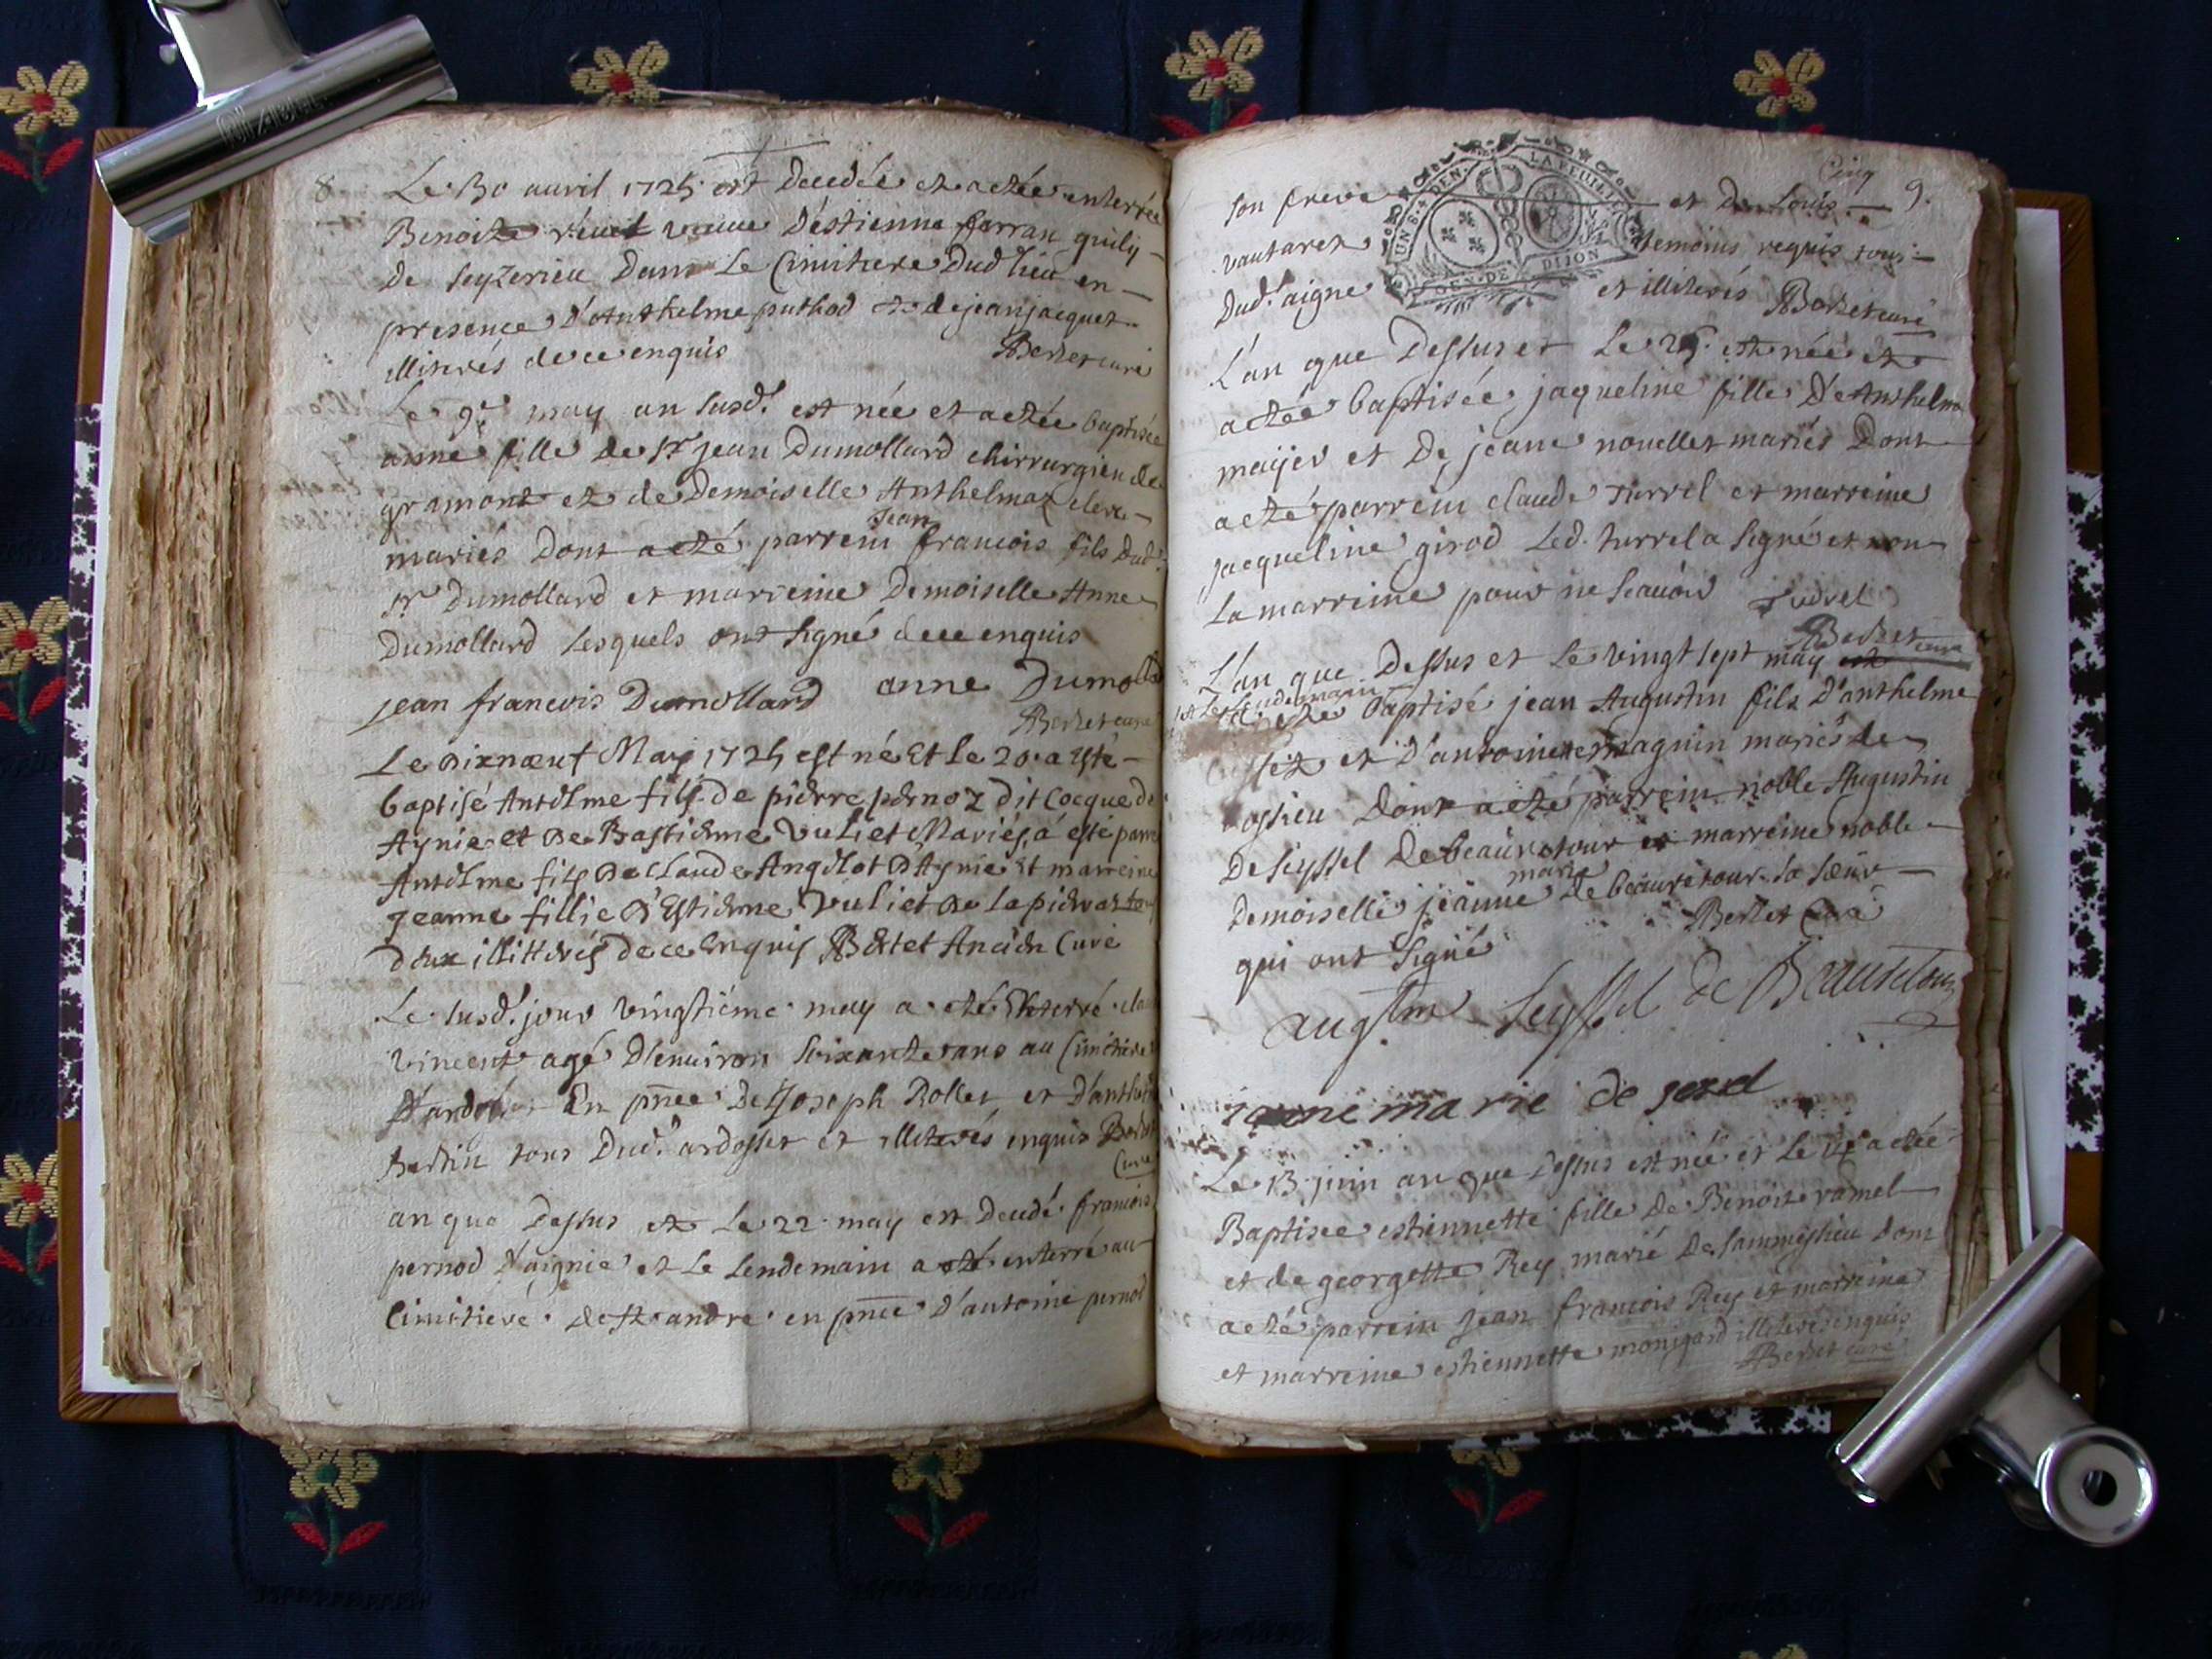 8
Le 30 auril 1725 est decedée et a etée enterrée
Benoite veuue D'estienne farran
de seyzerieu Dans Le Cimitiere Dud lieu en
presence D'Anthelme puthod et de jean jacquet
illiterés de ce enquis Berlet curé
Le 9e may an susd.t est née et a etée baptisée
anne fille de Sr jean Dumollard chirrurgien de
gramont et de Demoiselle Anthelmaz
mariés Dont a eté parrein jean francois fils Dud.t
Sr Dumollard et marreine Demoiselle Anne
Dumollard Lesquels ont signé de ce enquis
jean francois Dumollard anne Dumollard
Berlet curé
Le dixnœuf May 1725 est né Et le 20. a Esté
baptisé Antelme fils de pierre pernoz dit Cocque de
Aynie et de Bastienne Vuliet Mariés, a esté parrein
Antelme fils de Claude Angelot d'Aynie et marreine
Jeanne fillie d'Estienne Vuliet de
deux illitterés de ce Enquis Berlet Ancien Curé
Le susd.t jour vingtiéme may a eté Enterré
vincent agé D'enuiron soixante ans au Cimitiere
D'ardosset En pnce De Joseph Rollet et D'anthelme
Bertin tous Dud.t ardosset et illiterés enquis Berlet
Curé
an que Dessus et Le 22 may est Decedé francois
pernod D'aignie et Le Lendemain a eté enterré au
Cimitiere de St andre en pnce D'antoine pernod
Cinq
9.
son frere et De Louis
vautaret temoins requis tous
Dud.t aignie et illiterés Berlet curé
UNE.4.DEN. LA FEUILLE
GEN.DE DIJON
L'an que Dessus et Le 25. est née et
a etée baptisée jaqueline fille D'Anthelme
et De jeane nouellet mariés Dont
a eté parrein claude Turrel et marreine
Jacqueline girod Led. turrel a signé et non
La marreine pour ne scauoir Turrel
Berlet curé
L'an que Dessus et Le vingt sept may
et Le Lendemain
a eté baptisé jean Augustin fils D'anthelme
et D'antoinette magnin mariés de
Dont a eté parrein noble Augustin
De seyssel de beauretour et marreine noble
Demoiselle jeanne marie de beauretour sa sœur
qui ont signé Berlet Curé
aug.tin Seyssel de Beauretour
janne marie de sesel
Le 13 juin an que Dessus est née et Le a etée
Baptisee estiennette fille de Benoit ramel
et de georgette Rey marié De sammeysieu Dont
a eté parrein Jean francois Rey et marreine
et marreine estiennette monigard illiterés enquis
Berlet curé